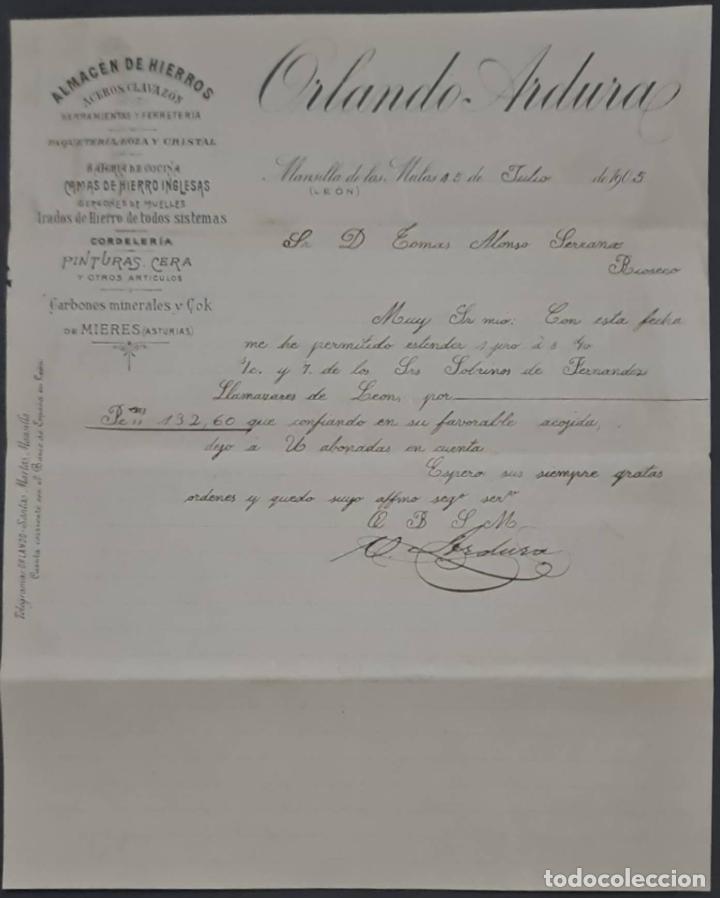 ALMACÉN DE HIERROS
ACEROS CLAVAZÓN
HERRAMIENTAS Y FERRETERIA
PAQUETERIA, LOZA Y CRISTAL
BATERIA DE COCINA
CAMAS DE HIERRO INGLESAS
GERGONES DE MUELLES
Arados de Hierro de todos sistemas
CORDELERÍA
PINTURAS, CERA
Y OTROS ARTICULOS
Carbones minerales y Cok
DE MIERES (ASTURIAS)
Telegrama: ORLANDO-Santas Martas, Mansilla
Cuenta corriente con el Banco de España en León
Orlando Ardura
Mansilla de las Mulas 15 de Julio de 1905
(LEÓN)
Sr D Tomas Alonso Serrano
Rioseco
Muy Sr mio: Con esta fecha
me he permitido estender 1 giro á 8 d/v
y de los Srs Sobrinos de Fernandez
Llamazares de Leon, por
132,60 que confiando en su favorable acojida,
dejo a U abonadas en cuenta
Espero sus siempre gratas
ordenes y quedo suyo affmo segº serºr
Q B S M
O. Ardura
todocoleccion.net